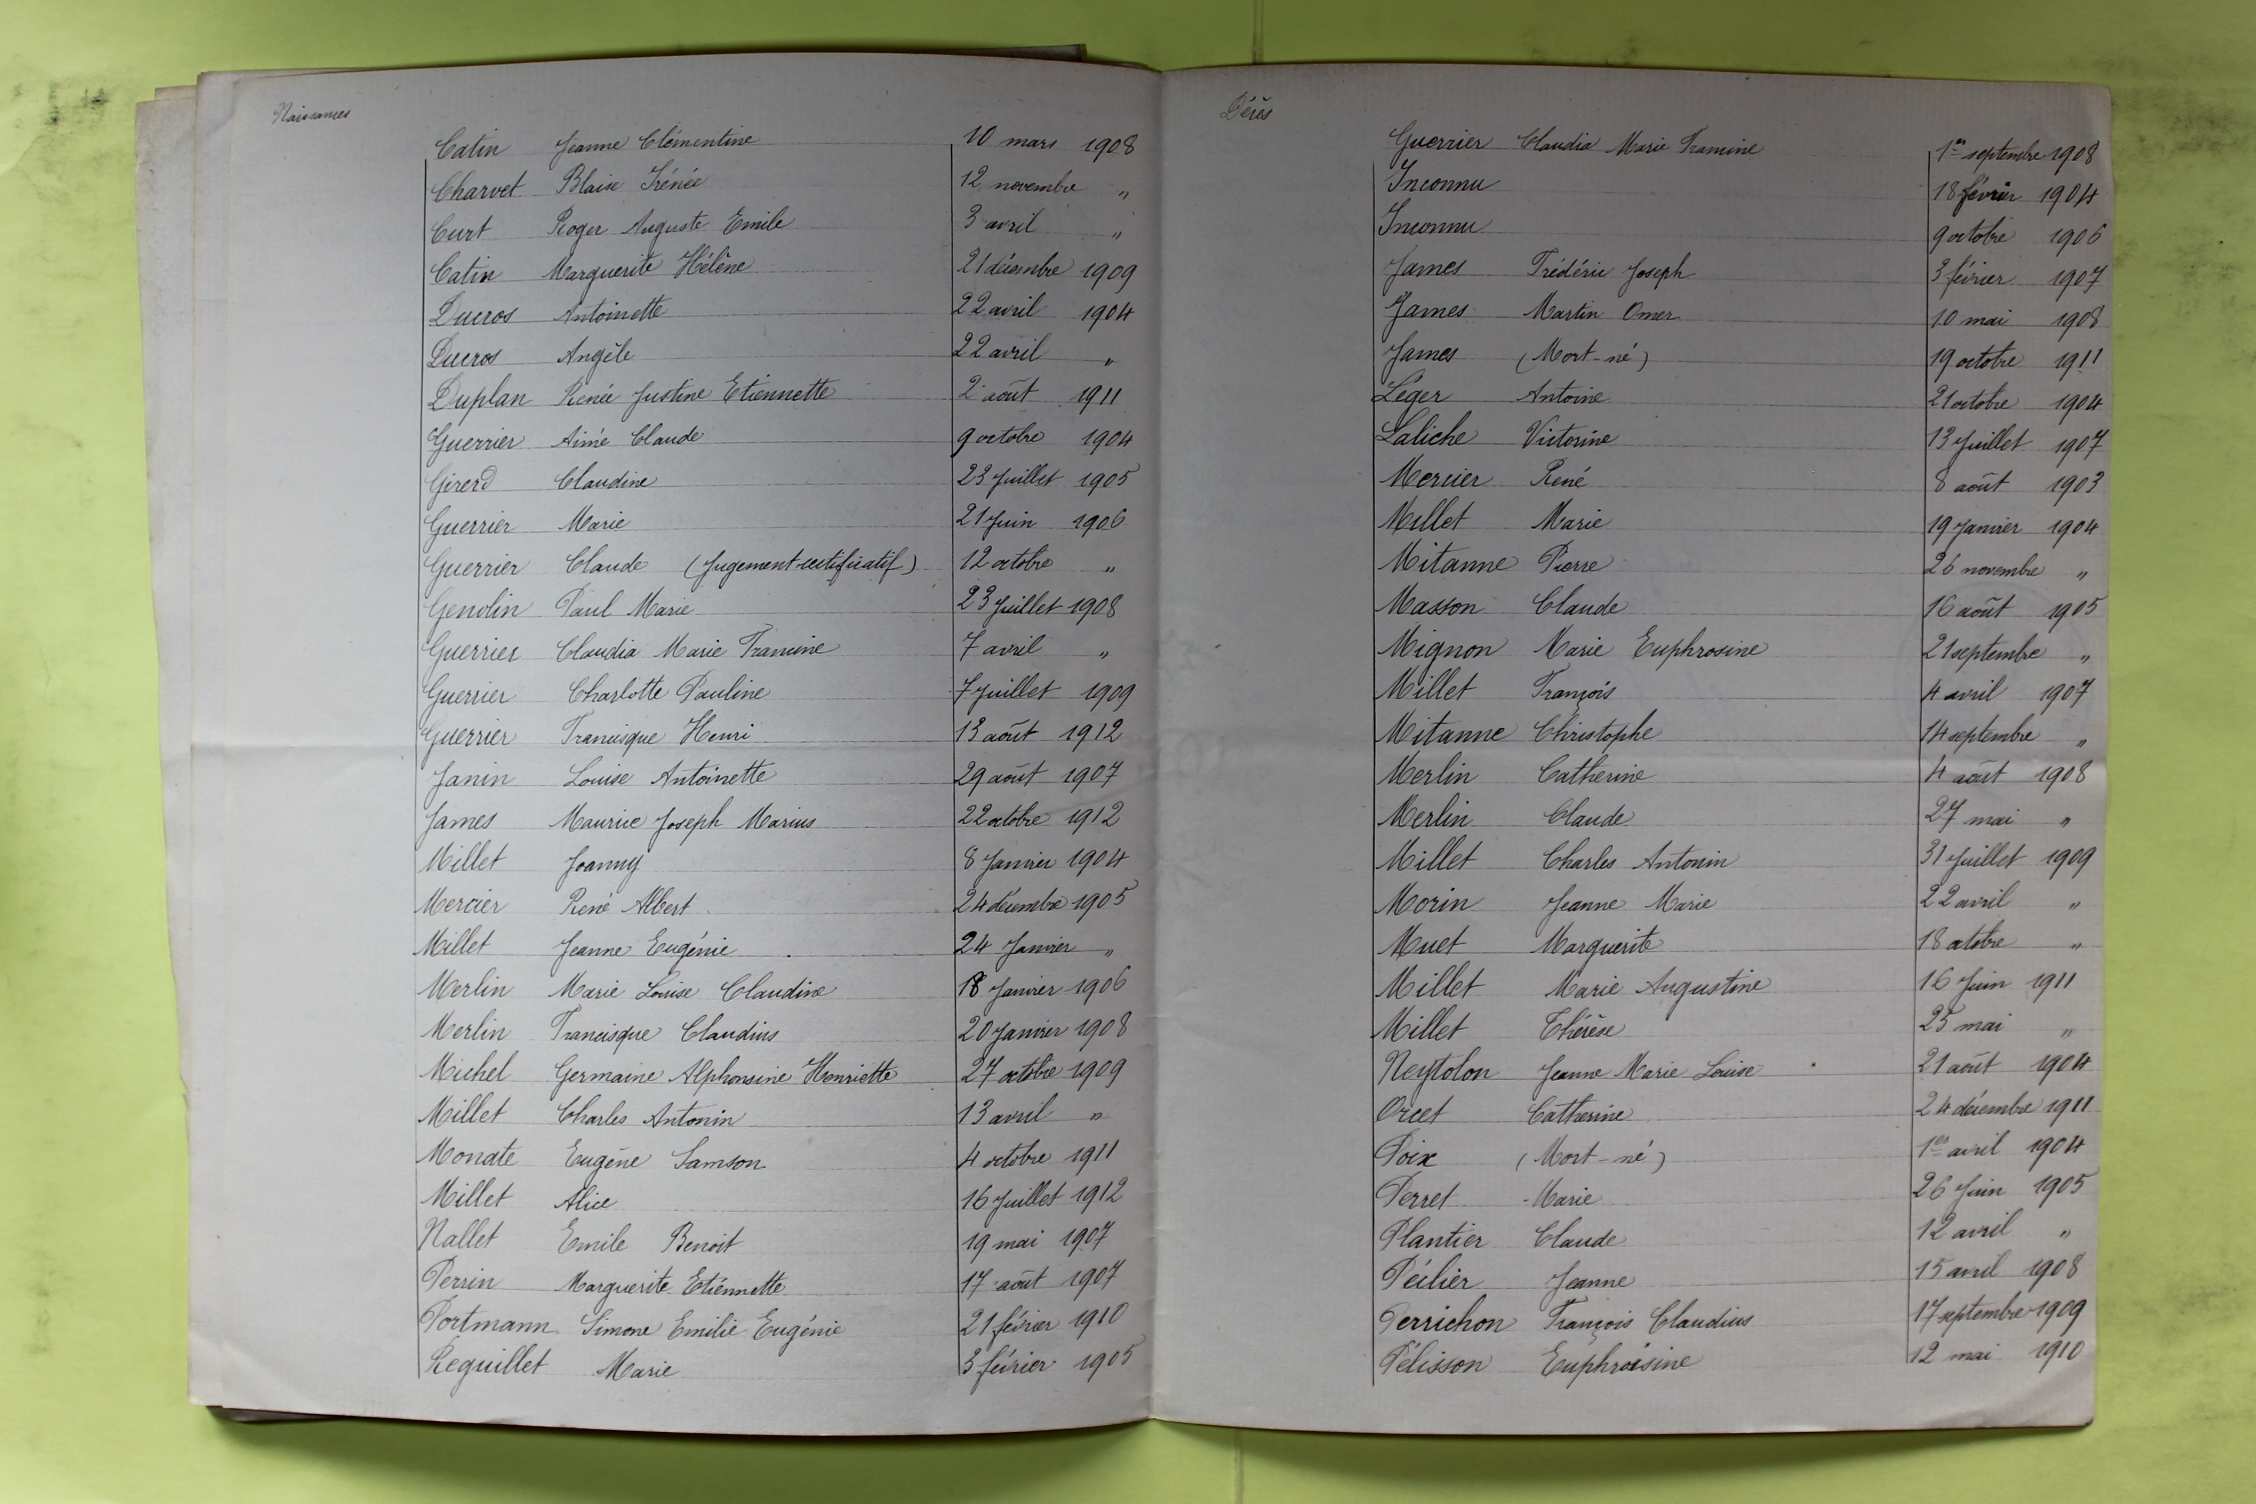 Naissances
Catin Jeanne Clémentine 10 mars 1908
Charvet Blaise Irénée 12 novembre "
Curt Roger Auguste Emile 3 avril "
Catin Marguerite Hélène 21 décembre 1909
Ducros Antoinette 22 avril 1904
Ducros Angèle 22 avril "
Duplan Renée Justine Etiennette 2 août 1911
Guerrier Aimé Claude 9 octobre 1904
Girerd Claudine 23 Juillet 1905
Guerrier Marie 21 Juin 1906
Guerrier Claude (Jugement rectificatif) 12 octobre "
Genolin Paul Marie 23 Juillet 1908
Guerrier Claudia Marie Francine 7 avril "
Guerrier Charlotte Pauline 7 Juillet 1909
Guerrier Francisque Henri 13 août 1912
Janin Louise Antoinette 29 août 1907
James Maurice Joseph Marius 22 octobre 1912
Millet Joanny 8 Janvier 1904
Mercier René Albert 24 décembre 1905
Millet Jeanne Eugénie 24 Janvier "
Merlin Marie Louise Claudine 18 Janvier 1906
Merlin Francisque Claudius 20 Janvier 1908
Michel Germaine Alphonsine Henriette 27 octobre 1909
Millet Charles Antonin 13 avril "
Monate Eugène Samson 4 octobre 1911
Millet Alice 16 Juillet 1912
Nallet Emile Benoit 19 mai 1907
Perrin Marguerite Etiennette 17 août 1907
Portmann Simone Emilie Eugénie 21 février 1910
Reguillet Marie 3 février 1905
Décès
Guerrier Claudia Marie Francine 1er septembre 1908
Inconnu 18 février 1904
Inconnu 9 octobre 1906
James Frédéric Joseph 3 février 1907
James Martin Omer 10 mai 1908
James (Mort-né) 19 octobre 1911
Léger Antoine 21 octobre 1904
Laliche Victorine 13 Juillet 1907
Mercier René 8 août 1903
Millet Marie 19 Janvier 1904
Mitanne Pierre 26 novembre "
Masson Claude 16 août 1905
Mignon Marie Euphrosine 21 septembre "
Millet François 4 avril 1907
Mitanne Christophe 14 septembre "
Merlin Catherine 4 août 1908
Merlin Claude 27 mai "
Millet Charles Antonin 31 Juillet 1909
Morin Jeanne Marie 22 avril "
Muet Marguerite 18 octobre "
Millet Marie Augustine 16 Juin 1911
Millet Thérèse 25 mai "
Neytolon Jeanne Marie Louise 21 août 1904
Orcet Catherine 24 décembre 1911
Poix (Mort-né) 1er avril 1904
Perret Marie 26 Juin 1905
Plantier Claude 12 avril "
Pécilier Jeanne 15 avril 1908
Perrichon François Claudius 17 septembre 1909
Pélisson Euphroisine 12 mai 1910